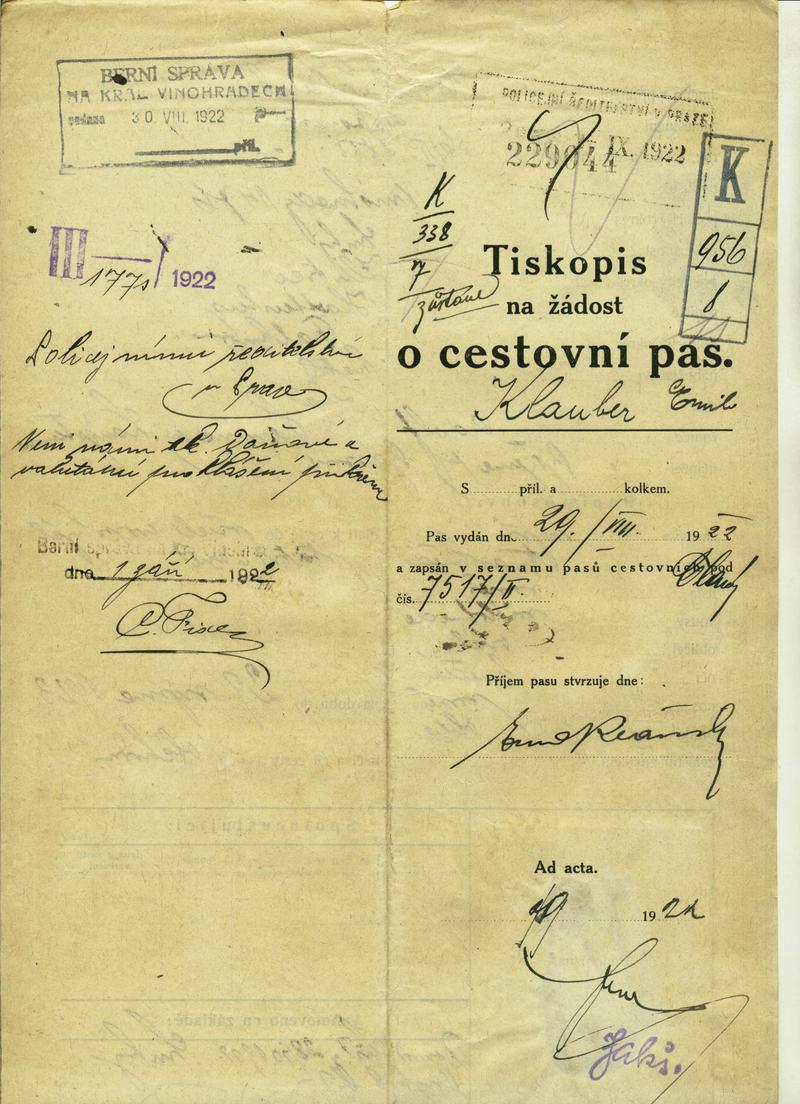 BERNÍ SPRÁVA
NA KRÁL. VINOHRADECH
podáno 30 VIII. 1922
příl.
III 1922
Policejnímu ředitelství
v Praze
Není námi
dne 1 září 1922
POLICEJNÍ ŘEDITELSTVÍ V PRAZE
229044 IX. 1922
K
956
8
K
338
7
zůstane
Tiskopis
na žádost
o cestovní pas.
Klauber Emil
S příl. a kolkem.
Pas vydán dne 29./VIII. 1922
a zapsán v seznamu pasů cestovních pod
čís. 7517/II.
Příjem pasu stvrzuje dne:
Ad acta.
19 22
Jakš.